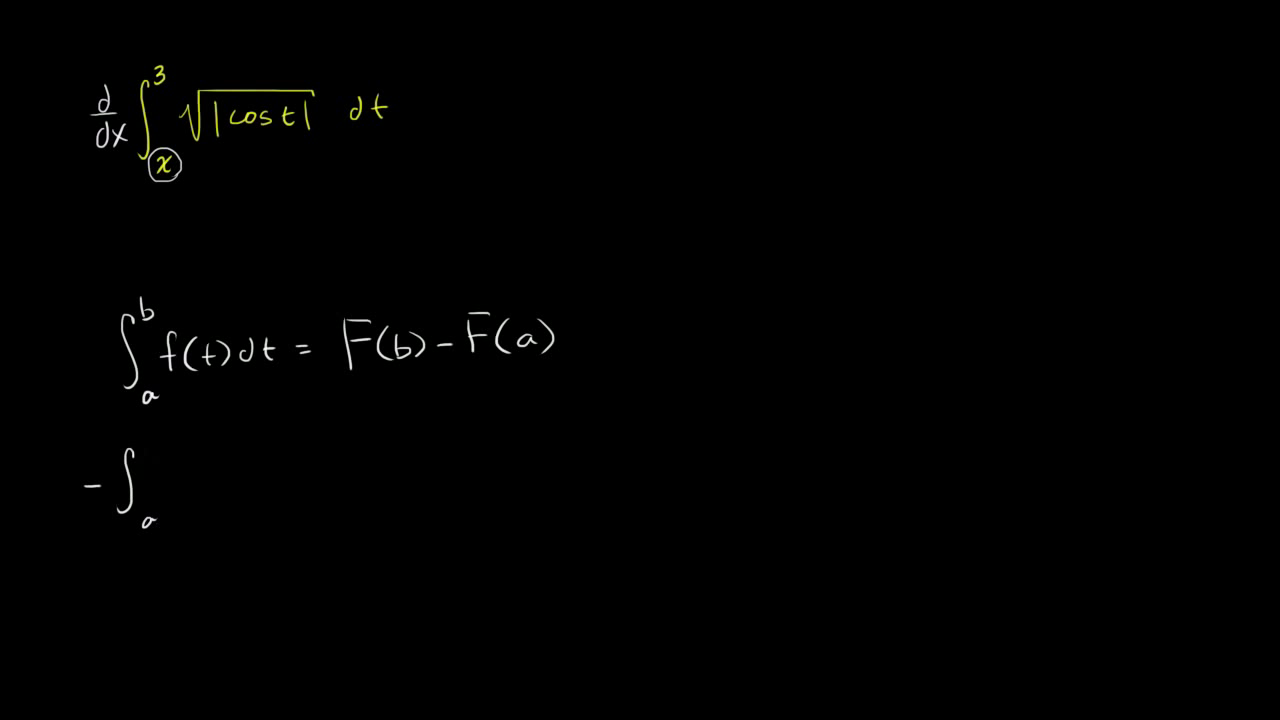 d/dx ∫_x^3 √|cos t| dt
∫_a^b f(t)dt = F(b) - F(a)
- ∫_a